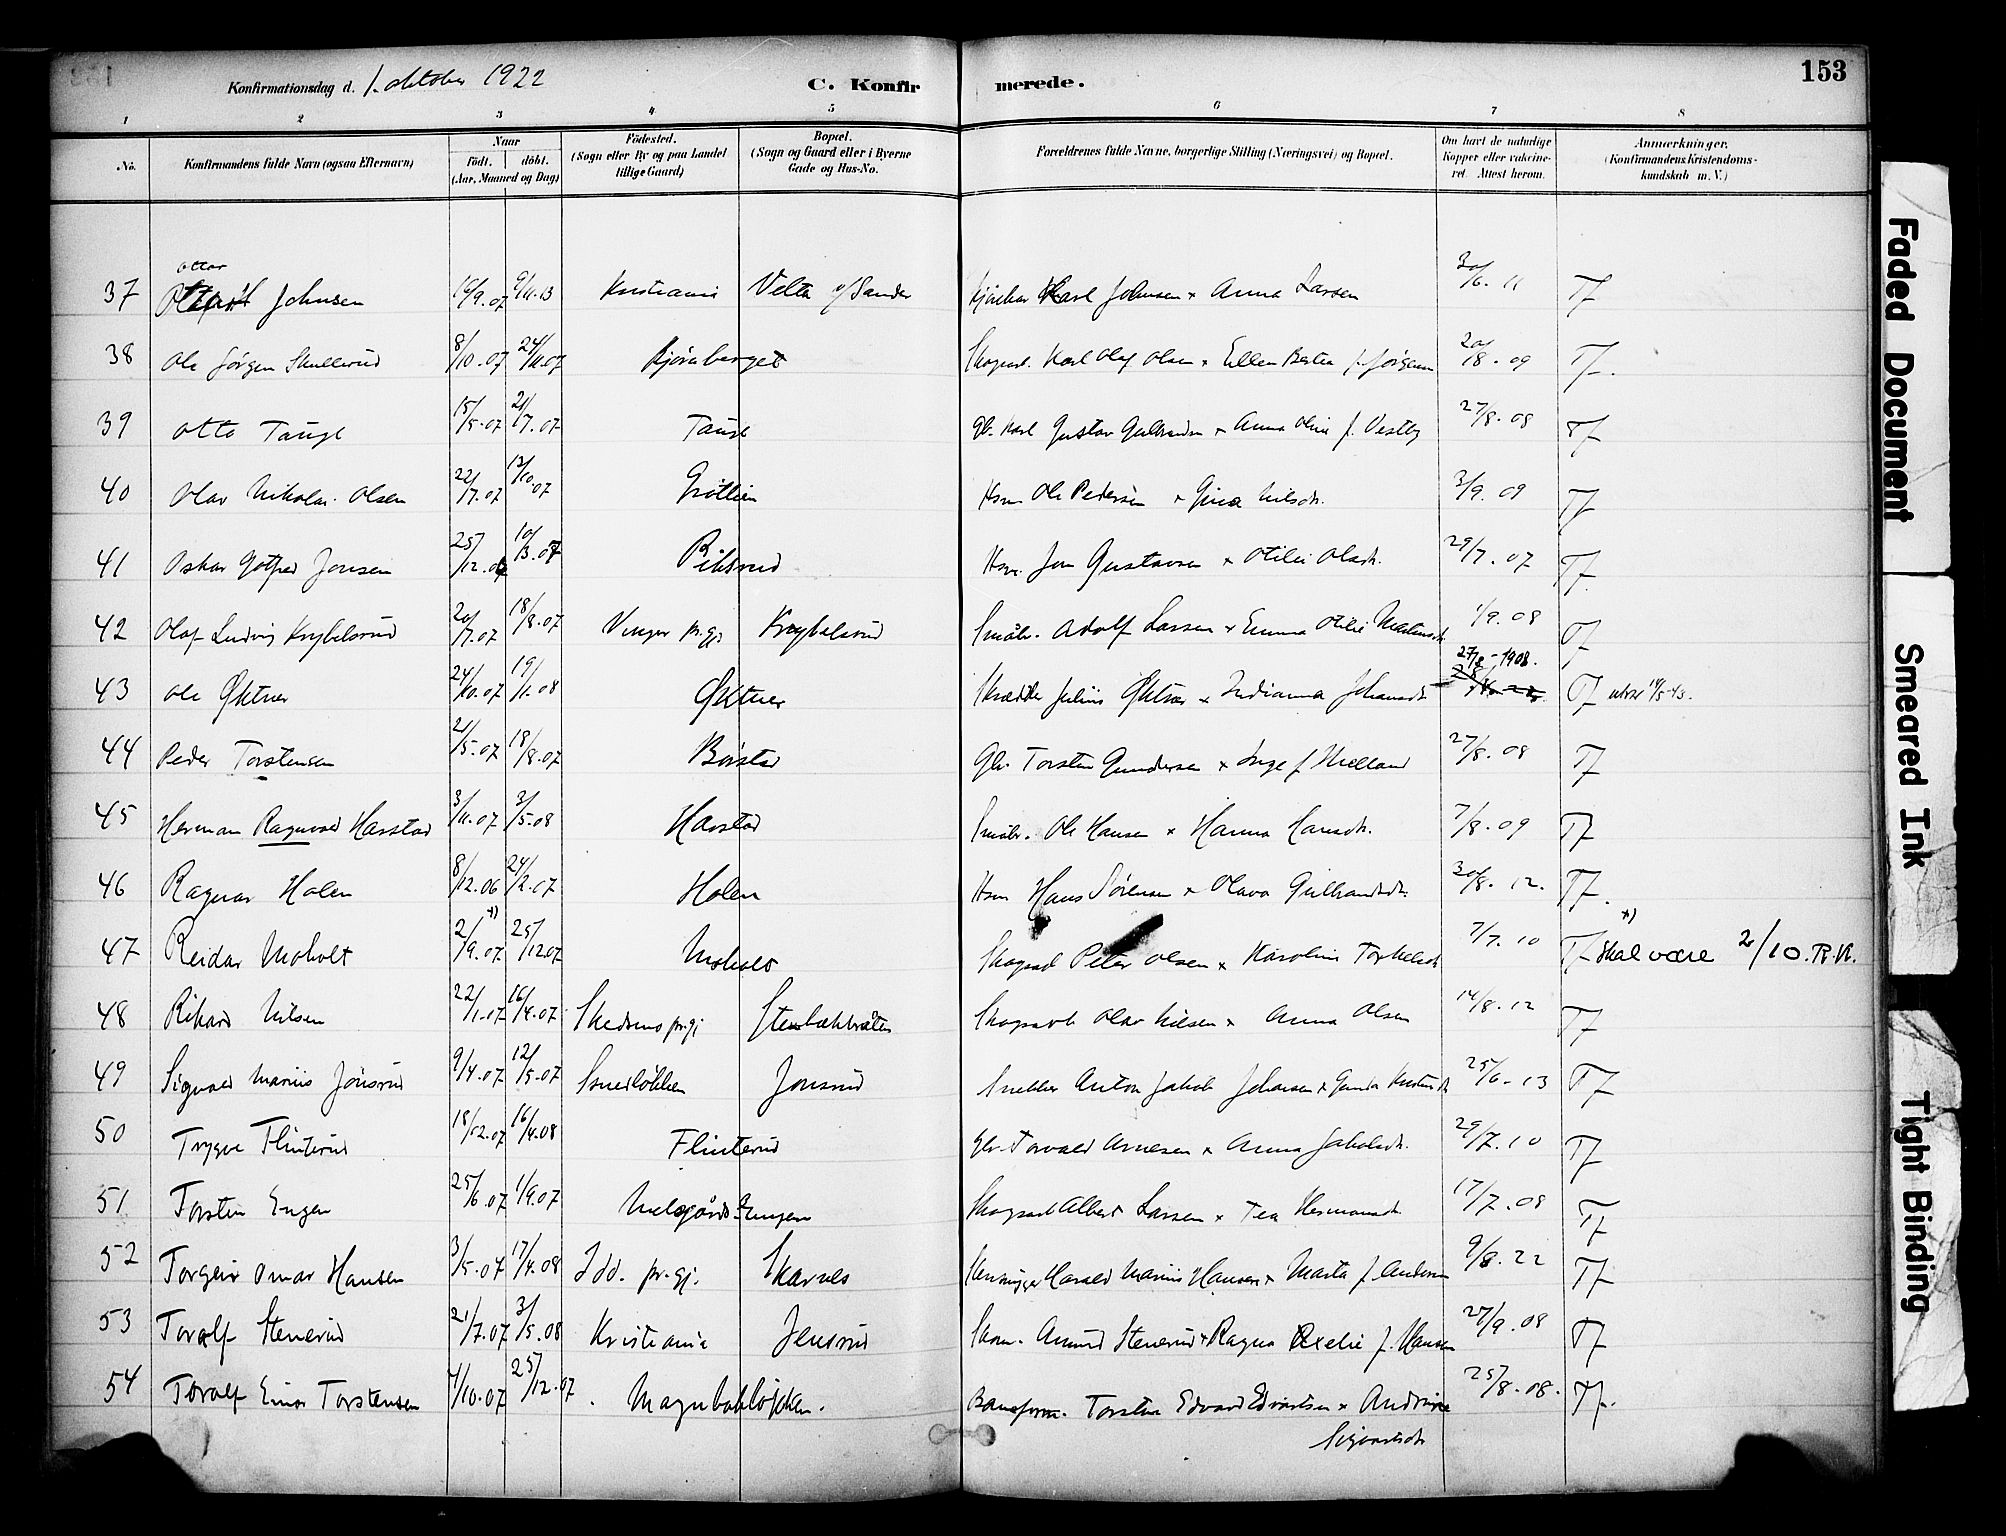 Konfirmationsdag d. 1. oktober 1922
C. Konfirmerede.
153
1 2 3 4 5 6 7 8
No.
Konfirmandens fulde Navn (ogsaa Efternavn)
Naar
födt. döbt.
(Aar, Maaned og Dag)
Födested.
(Sogn eller By og paa Landet
tillige Gaard)
Bopæl.
(Sogn og Gaard eller i Byerne
Gade og Hus-No.
Forældrenes fulde Navne, borgerlige Stilling (Næringsvei) og Bopæl.
Om havt de naturlige
Kopper eller vakcine-
ret. Attest herom.
Anmærkninger.
(Konfirmandens Kristendoms-
kundskab m. V.)
Ottar
37 Johnsen 9/11.13 Kristiania Velta v/Sander Karl Johnsen x Anna Larsen 30/6. 11 Tf
38 Ole Jørgen Skullerud 8/10.07 24/11.07 Bjørneberget Skogsarb. Karl Olaf Olsen x Ellen Bertea f. Jørgensen 20/8. 09 Tf.
39 Otto Taugl 15/5.07 21/7.07 Taugl Gbr. Karl Gustav Gulbrandsen x Anna Oline f. Vestby 27/8.08 Tf
40 Olav Nikolai Olsen 22/7.07 13/10.07 Grøtlien Hsm Ole Pedersen x Gina Nilsdt. 3/9. 09 Tf
41 Oskar Gotfred Jonsen 25/12.06 10/3.07 Riksrud Hsm. Jon Gustavsen x Otilie Olsdt. 29/7. 07 Tf
42 Olaf Ludvig Krybelsrud 20/7.07 18/8.07 Vinger pr.gj. Krybelsrud Småbr. Adolf Larsen x Emma Otilie Martinsdt 1/9. 08 Tf
43 Ole Øktner 24/10.07 19/1.08 Øktner Skrædder Julius Øktner x Indianna Johansdt 27/8-1908. Tf utvst 14/5-43.
44 Peder Torstensen 2/5.07 18/8.07 Børstad Gbr. Torsten Gundersen x Inge f 27/8. 08 Tf
45 Herman Ragnvald Harstad 3/11.07 3/5.08 Harstad Småbr. Ole Hansen x Hanna Hansdt. 7/8. 09 Tf
46 Ragnar Holen 8/12.06 24/2.07 Holen Hsm Hans Sørensen x Olava Gulbrandsdt. 30/8. 12. Tf.
47 Reidar Moholt 2/9.07 x) 25/12.07 Moholt Skogsarb Peter Olsen x Karoline Torkelsdt 7/7. 10 Tf x) skal være 2/10. R.K.
48 Rikard Nilsen 22/1.07 16/4.07 Skedsmo pr.gj Stenbækbråten Skogsarb Olav Nilsen x Anna Olsen 14/8. 12 Tf
49 Sigvald Marius Jonsrud 9/4.07 12/5.07 Smedløkken Jonsrud Snekker Anton Jakob Johansen x Gunda 25/6-13 Tf
50 Trygve Flinterud 18/12.07 16/4.08 Flinterud Gbr. Torvald Arnesen x Anna Jakobsdt. 29/7. 10 Tf
51 Torstein Engen 25/6.07 1/9.07 Melgårds-Engen Skogsarb Albert Larsen x Tea Hermansdt 17/7. 08 Tf
52 Torgeir Omar Hansen 3/5.07 17/4.08 Idd. pr.gj. Skarnes Harald Marius Hansen x Marta f. Andersen 9/8. 22 Tf
53 Toralf Stenerud 21/7.07 3/5.08 Kristiania Jensrud Amund Stenerud x Ragna f. Hansen 27/9. 08 Tf
54 Toralf Einar Torstensen 4/10.07 25/12.07 Magnbakløkken. Baneform. Torsten Edvard Edvartsen x Andrine 25/8. 08. Tf.
Sigvartsdt
Faded Document
Smeared Ink
Tight Binding